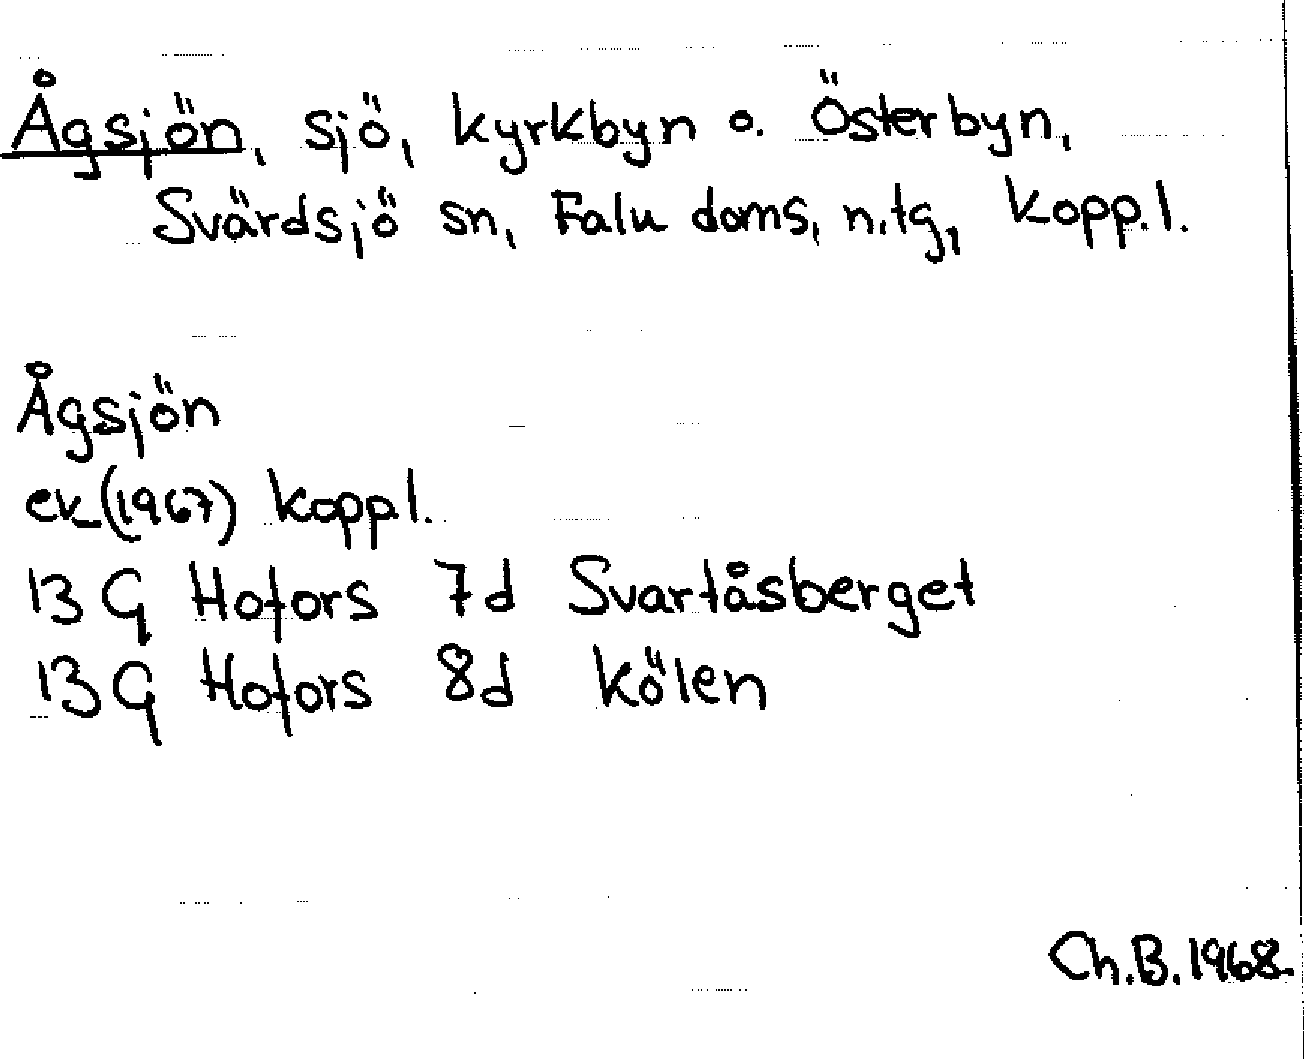 Ågsjön, sjö, kyrkbyn o. Österbyn,
Svärdsjö sn, Falu doms, n.tg, Kopp.l.
Ågsjön
ek (1967) Koppl.
13 G Hofors 7d Svartåsberget
13 G Hofors 8d Kölen
Ch.B. 1968.